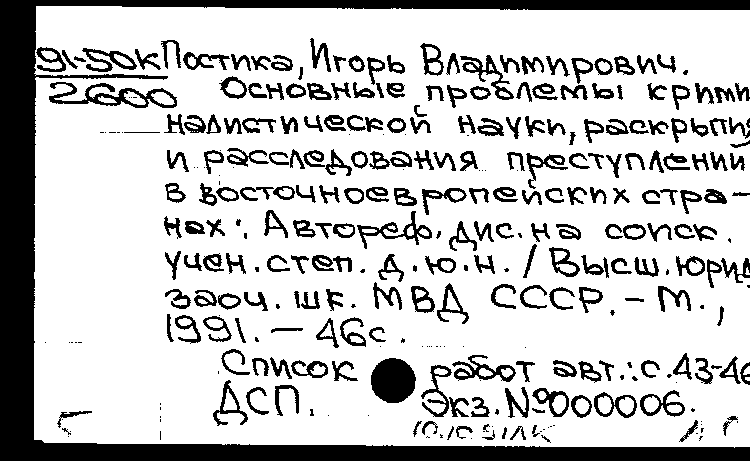 91-50к Постика, Игорь Владимирович.
2600 Основные проблемы крими
налистической науки, раскрытия
и расследования преступлений
в восточноевропейских стра-
нах: Автореф. дис. на соиск.
учен. степ. д.ю.н. / Высш. юрид
заоч. шк. МВД СССР. - М.,
1991. - 46с.
Список работ авт.: с. 43-46
ДСП. Экз. №000006.